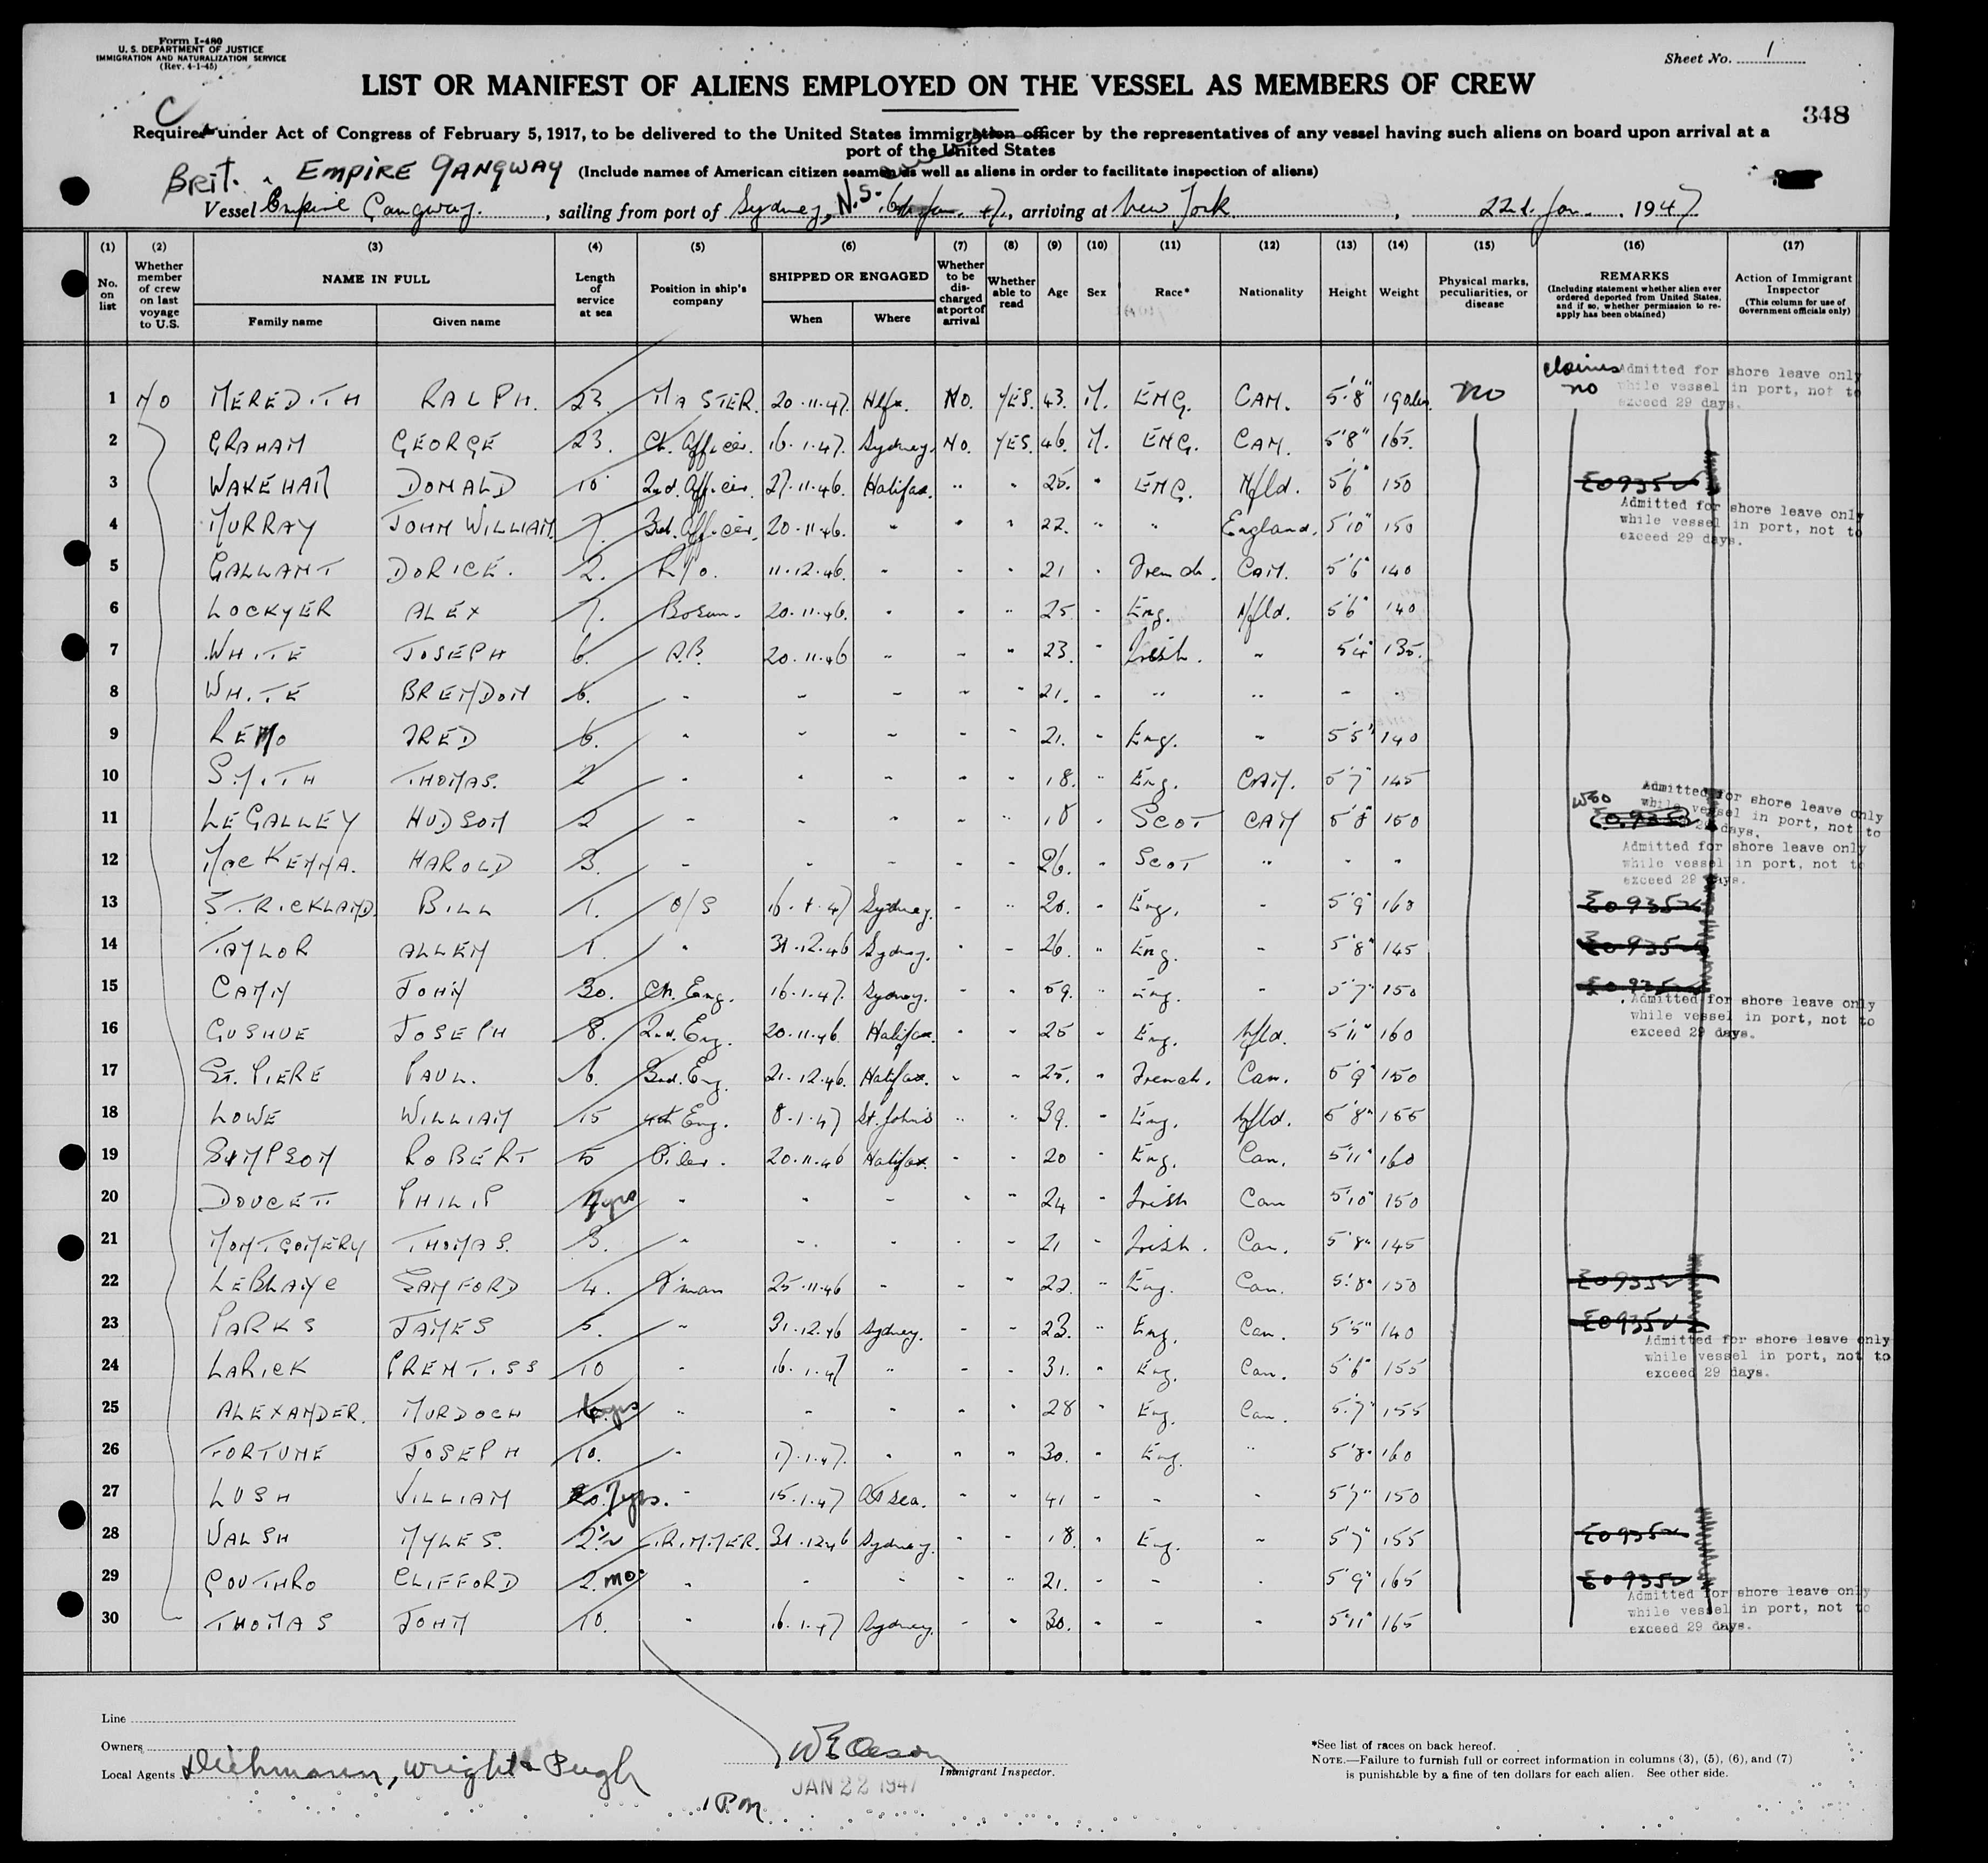 Form I-480
U. S. DEPARTMENT OF JUSTICE
IMMIGRATION AND NATURALIZATION SERVICE
(Rev. 4-1-45)
Sheet No. 1
LIST OR MANIFEST OF ALIENS EMPLOYED ON THE VESSEL AS MEMBERS OF CREW
348
C
Required under Act of Congress of February 5, 1917, to be delivered to the United States immigration officer by the representatives of any vessel having such aliens on board upon arrival at a
port of the United States
Brit. EMPIRE GANGWAY (Include names of American citizen seamen as well as aliens in order to facilitate inspection of aliens)
Vessel Empire Gangway, sailing from port of Sydney, N.S., arriving at New York, 22d. Jan. 1947
(1) (2) (3) (4) (5) (6) (7) (8) (9) (10) (11) (12) (13) (14) (15) (16) (17)
No. on list
Whether member of crew on last voyage to U.S.
NAME IN FULL
Family name Given name
Length of service at sea
Position in ship's company
SHIPPED OR ENGAGED
When Where
Whether to be discharged at port of arrival
Whether able to read
Age Sex Race* Nationality Height Weight
Physical marks, peculiarities, or disease
REMARKS
(Including statement whether alien ever ordered deported from United States, and if so, whether permission to reapply has been obtained)
Action of Immigrant Inspector
(This column for use of Government officials only)
claims Admitted for shore leave only
while vessel in port, not to
exceed 29 days.
1 NO MEREDITH RALPH. 23. MASTER. 20.11.47. Hlfx. NO. YES. 43. M. ENG. CAN. 5'8" no no
2 GRAHAM GEORGE 23. Ch. Officer. 16.1.47. Sydney. NO. YES. 46. M. ENG. CAN. 5'8" 165.
3 WAKEHAM DONALD 10 2nd. Officer. 27.11.46. Halifax. " " 25. " ENG. Nfld. 5'6" 150
Admitted for shore leave only
while vessel in port, not to
exceed 29 days.
4 MURRAY JOHN WILLIAM. 7. 3rd. Officer. 20.11.46. " " " 22. " " England. 5'10" 150
5 GALLANT DORICE. 2. R/O. 11.12.46. " " " 21 " French. CAN. 5'6" 140
6 LOCKYER ALEX 7. Bosun. 20.11.46. " " " 25 " Eng. Nfld. 5'6" 140
7 WHITE JOSEPH 6. A.B. 20.11.46 " " " 23. " Irish. " 5'4" 135.
8 WHITE BRENDON 6. " " " " " 21. " " " " "
9 RENO FRED 6. " " " " " 21. " Eng. " 5'5" 140
10 SMITH THOMAS. 2 " " " " " 18. " Eng. CAN. 5'7" 145
11 LEGALLEY HUDSON 2 " " " " " 18 " SCOT CAN 5'8" 150
Admitted for shore leave only
while vessel in port, not to
29 days.
12 MacKENNA. HAROLD 3. " " " " " 26. " SCOT " " "
Admitted for shore leave only
while vessel in port, not to
exceed 29 days.
13 STRICKLAND BILL 1. O/S 16.1.47 Sydney. " " 20. " Eng. " 5'9" 160
14 TAYLOR ALLEN 1. " 31.12.46 Sydney. " " 26. " Eng. " 5'8" 145
15 CANN JOHN 30. Ch. Eng. 16.1.47. Sydney. " " 59. " Eng. " 5'7" 150
Admitted for shore leave only
while vessel in port, not to
exceed 29 days.
16 GUSHUE JOSEPH 8. 2nd. Eng. 20.11.46 Halifax. " " 25 " Eng. Nfld. 5'11" 160
17 ST. PIERE PAUL. 6. 3rd. Eng. 21.12.46. Halifax. " " 25. " French. Can. 5'9" 150
18 LOWE WILLIAM 15 4th Eng. 8.1.47 St. John's " " 39. " Eng. Nfld. 5'8" 155
19 SIMPSON ROBERT 5 Oiler. 20.11.46 Halifax. " " 20 " Eng. Can. 5'11" 160
20 DOUCETT PHILIP 4yrs " " " " " 24 " Irish Can 5'10" 150
21 MONTGOMERY THOMAS. 3. " " " " " 21 " Irish. Can. 5'8" 145
22 LEBLANC SANFORD 4. F'man 25.11.46 " " " 22. " Eng. Can. 5'8" 150
23 PARKS JAMES 5. " 31.12.46 Sydney. " " 23. " Eng. Can. 5'5" 140
Admitted for shore leave only
while vessel in port, not to
exceed 29 days.
24 LARICK PRENTISS 10 " 16.1.47 " " " 31. " Eng. Can. 5'6" 155
25 ALEXANDER. MURDOCH " " " " " 28 " Eng. Can. 5'7" 155
26 FORTUNE JOSEPH 10. " 17.1.47. " " " 30. " Eng. " 5'8" 160
27 LUSH WILLIAM 7yrs. " 15.1.47 At sea. " " 41 " " " 5'7" 150
28 WALSH MYLES. 2½ TRIMMER. 31.12.46 Sydney. " " 18. " Eng. " 5'7" 155
29 GOUTHRO CLIFFORD 2.mo. " " " " " 21. " " " 5'9" 165
Admitted for shore leave only
while vessel in port, not to
exceed 29 days.
30 THOMAS JOHN 10. " 16.1.47 Sydney. " " 30. " " " 5'11" 165
Line
Owners
Local Agents Diehmann, Wright & Pugh
Immigrant Inspector.
JAN 22 1947
1 P.M.
*See list of races on back hereof.
NOTE.—Failure to furnish full or correct information in columns (3), (5), (6), and (7)
is punishable by a fine of ten dollars for each alien. See other side.